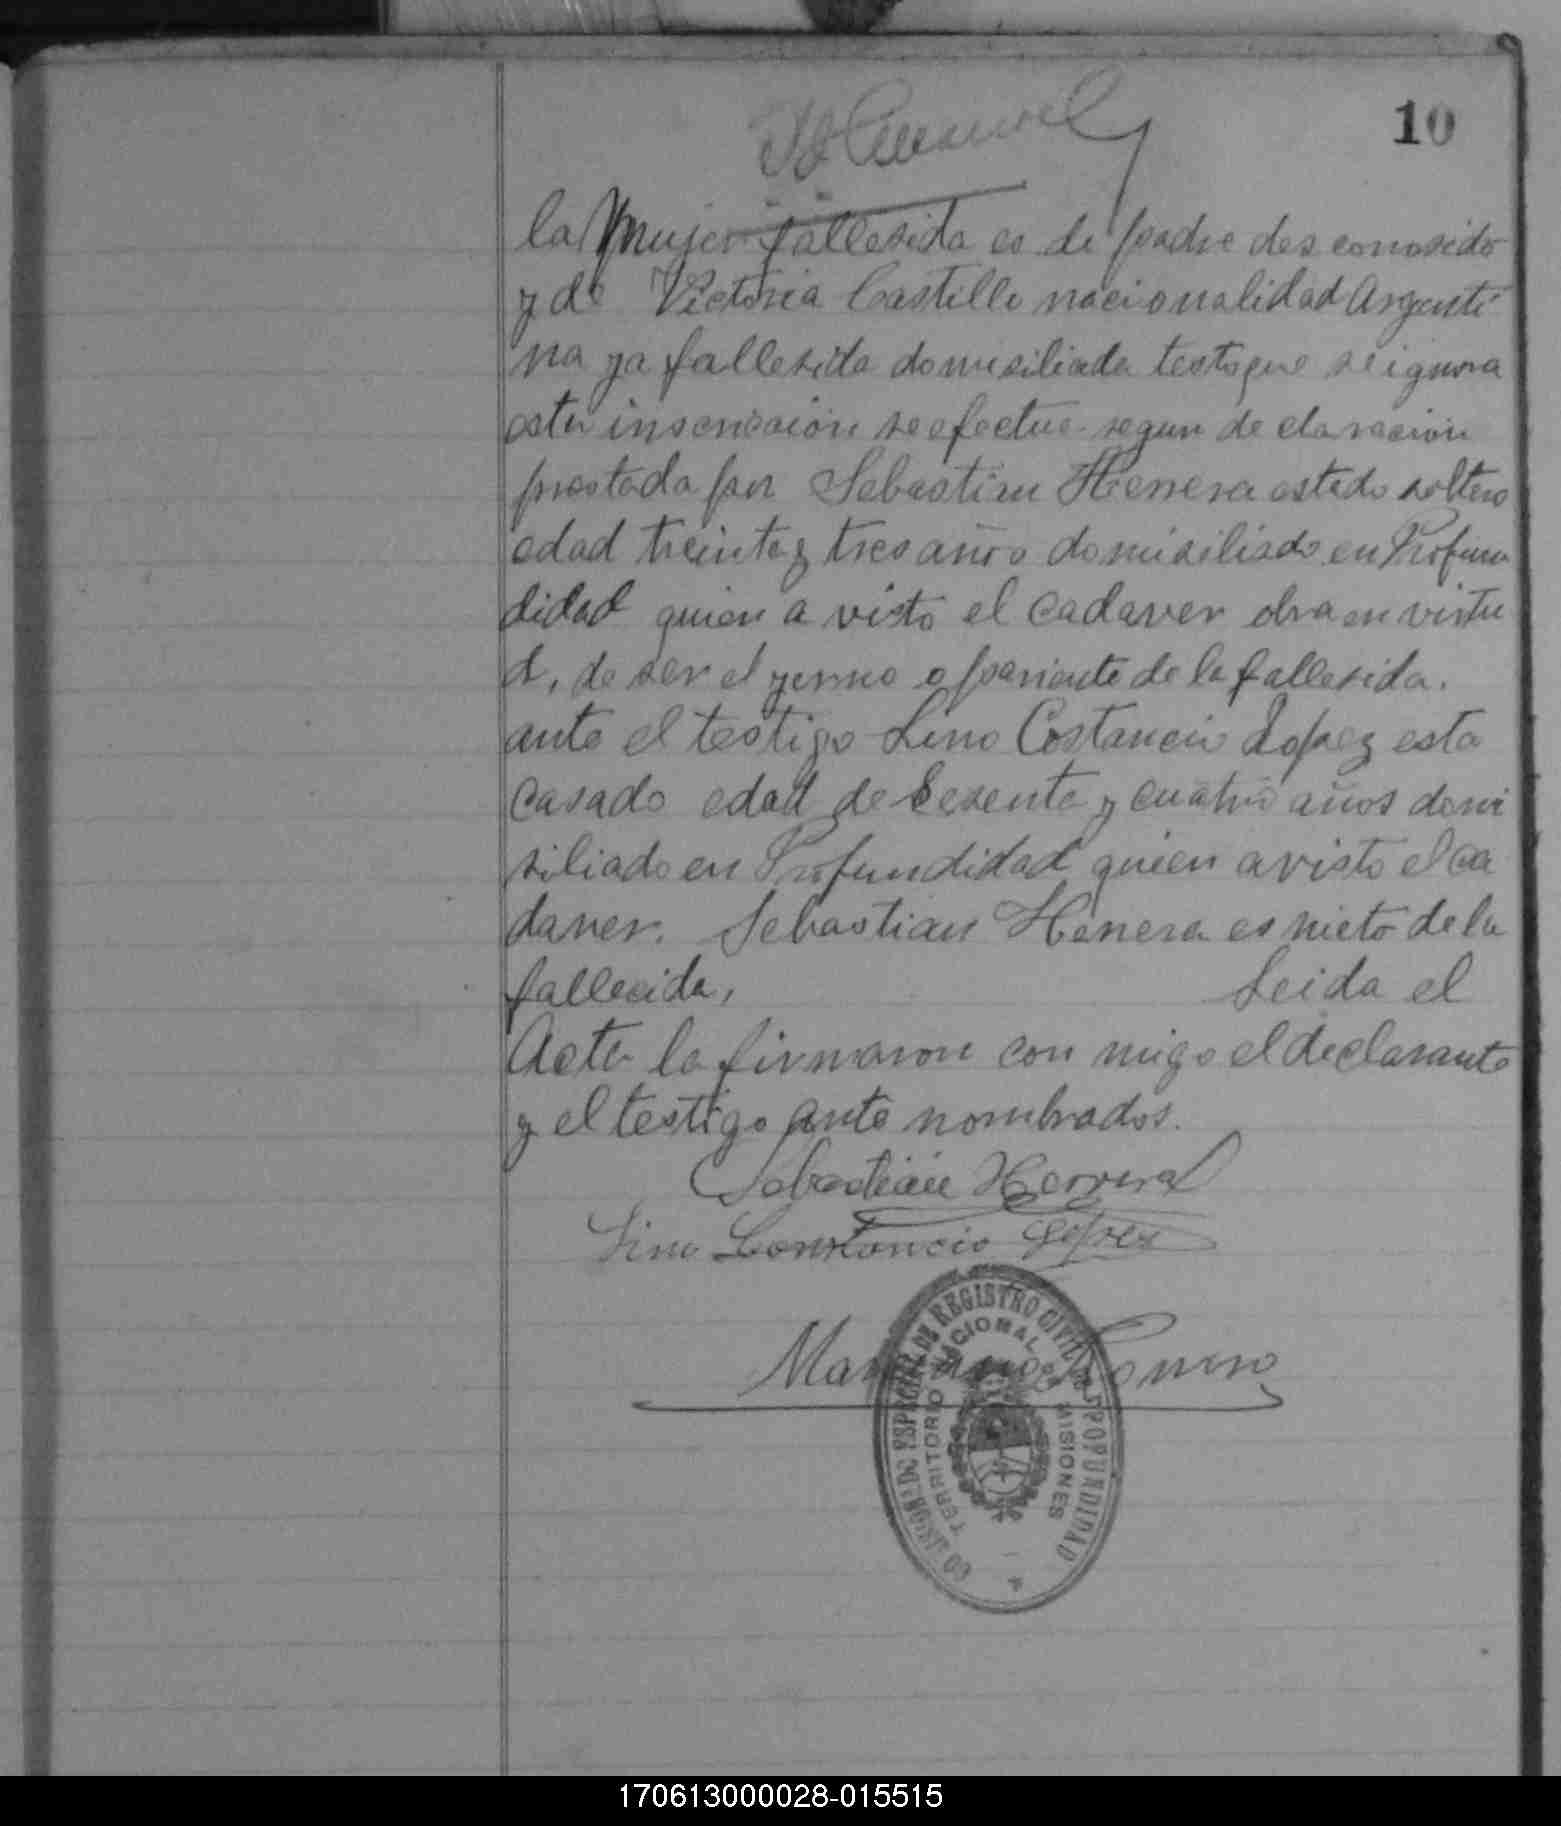 10
la Mujer fallesida es de padre des conosido
y de Victoria Castillo nacionalidad Argenti
na ya fallesida domisiliada testo que se ignora
esta inscricion se efectue segun de claracion
prestada por Sebastian Herrera estado soltero
edad treinta y tres años domisiliado en Profun
didad quien a visto el cadaver obra en virtu
d, de ser el yerno o pariente de la fallesida.
ante el testigo Lino Costancio Lopez esta
casado edad de Sesenta y cuatro años domi
siliado en Profundidad quien a visto el ca
daver. Sebastian Herrera es nieto de la
fallecida, Leida el
Acta la firmaron con migo el declarante
y el testigo ante nombrados.
Sebastián Herrera
Lino Constancio Lopez
REGISTRO CIVIL DE PROFUNDIDAD
TERRITORIO NACIONAL DE MISIONES
170613000028-015515